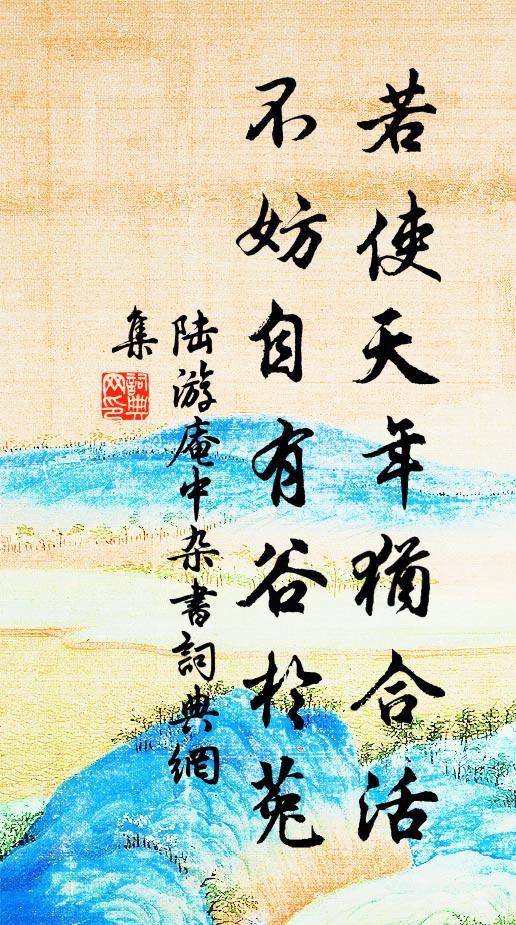 若使天年猶合活
不妨自有谷於菟
陆游庵中杂書詞典網
集
詞典網印